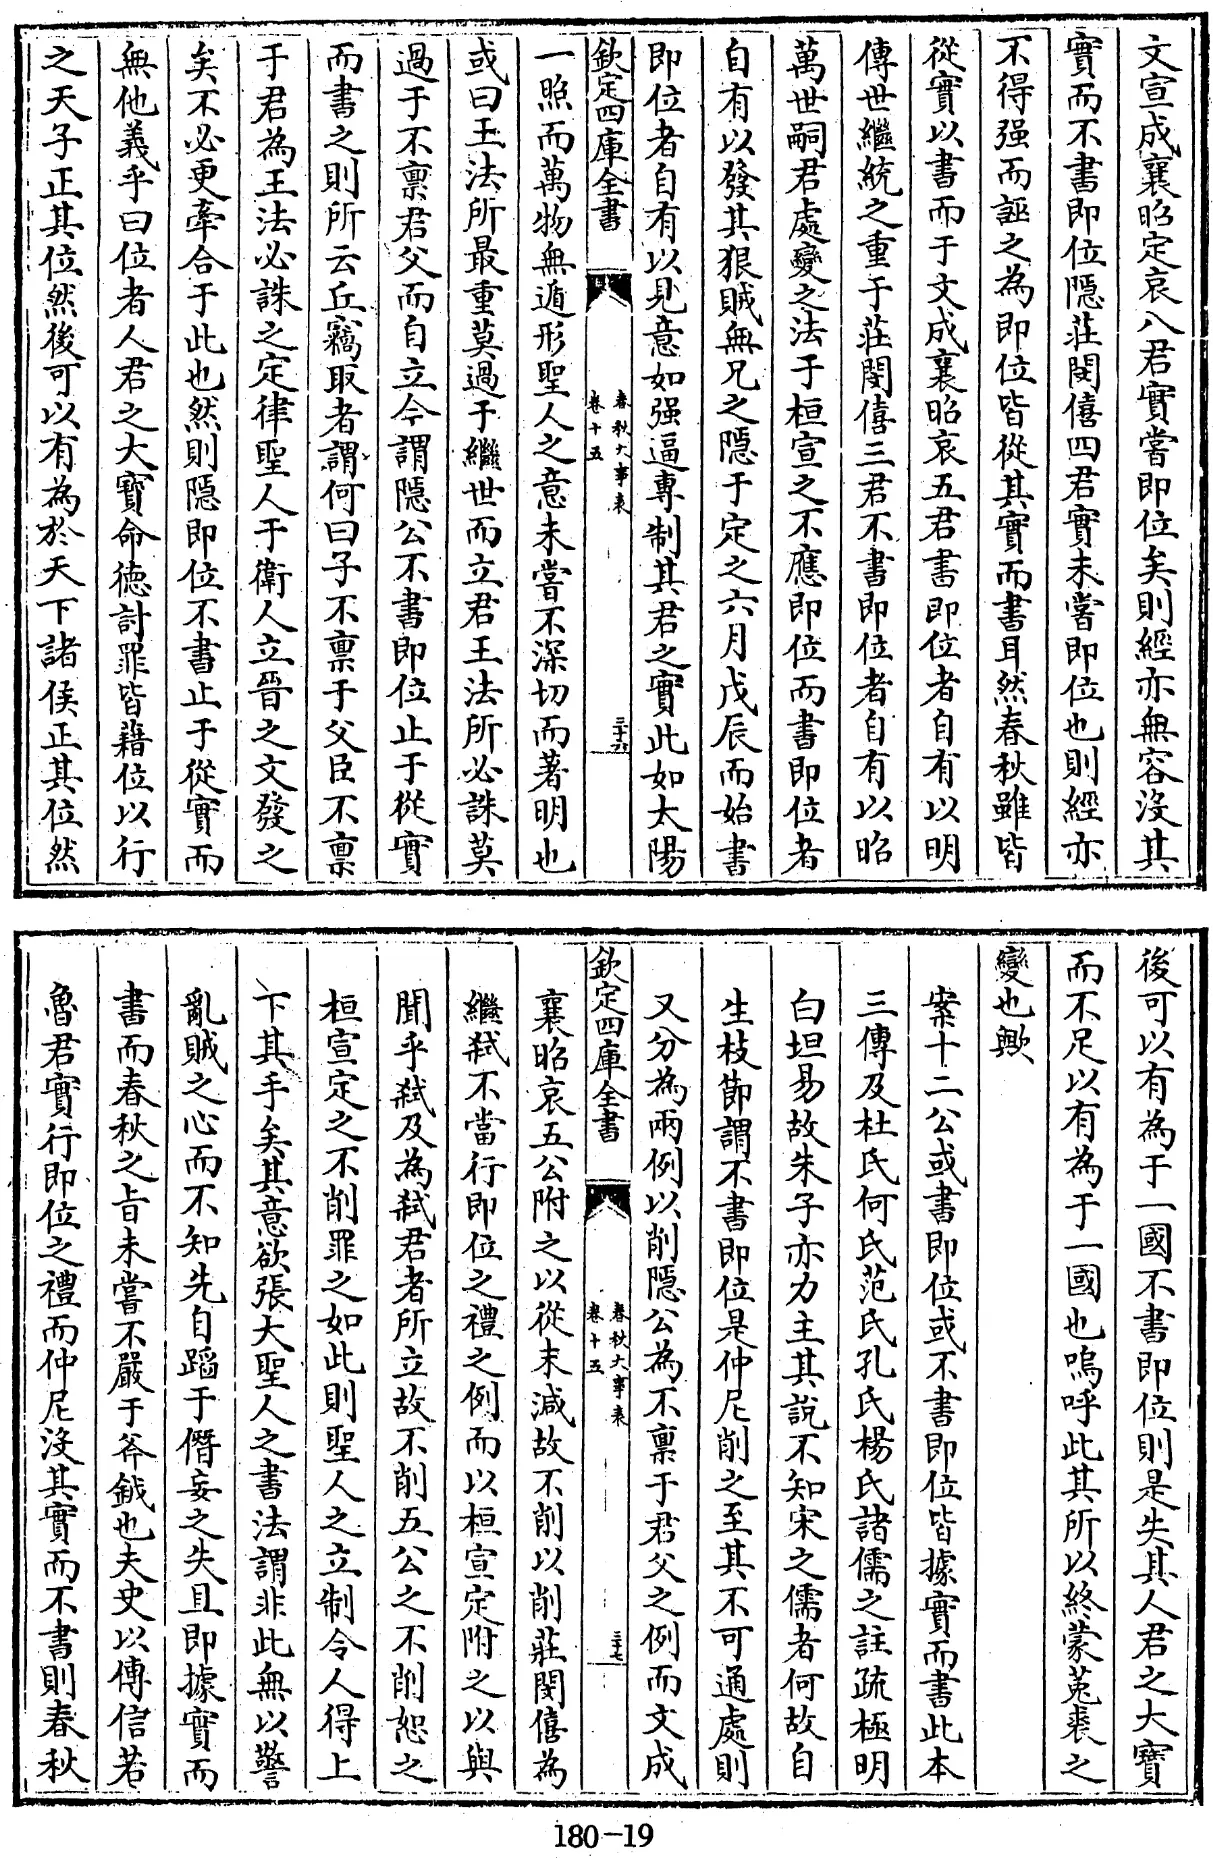 文宣成襄昭定哀八君實嘗即位矣則經亦無容沒其
實而不書即位隱莊閔僖四君實未嘗即位也則經亦
不得强而誣之為即位皆從其實而書耳然春秋雖皆
從實以書而于文成襄昭哀五君書即位者自有以明
傳世繼統之重于莊閔僖三君不書即位者自有以昭
萬世嗣君處變之法于桓宣之不應即位而書即位者
自有以發其狠賊無兄之隱于定之六月戊辰而始書
即位者自有以見意如强逼專制其君之實此如太陽
欽定四庫全書
春秋大事表
卷十五
三十六
一照而萬物無遁形聖人之意未嘗不深切而著明也
或曰王法所最重莫過于繼世而立君王法所必誅莫
過于不禀君父而自立今謂隱公不書即位止于從實
而書之則所云丘竊取者謂何曰子不禀于父臣不禀
于君為王法必誅之定律聖人于衛人立晉之文發之
矣不必更牽合于此也然則隱即位不書止于從實而
無他義乎曰位者人君之大寶命德討罪皆藉位以行
之天子正其位然後可以有為於天下諸侯正其位然
後可以有為于一國不書即位則是失其人君之大寶
而不足以有為于一國也嗚呼此其所以終蒙菟裘之
變也歟
案十二公或書即位或不書即位皆據實而書此本
三傳及杜氏何氏范氏孔氏楊氏諸儒之註疏極明
白坦易故朱子亦力主其說不知宋之儒者何故自
生枝節謂不書即位是仲尼削之至其不可通處則
又分為兩例以削隱公為不禀于君父之例而文成
欽定四庫全書
春秋大事表
卷十五
三十七
襄昭哀五公附之以從末減故不削以削莊閔僖為
繼弒不當行即位之禮之例而以桓宣定附之以與
聞乎弒及為弒君者所立故不削五公之不削恕之
桓宣定之不削罪之如此則聖人之立制令人得上
下其手矣其意欲張大聖人之書法謂非此無以警
亂賊之心而不知先自蹈于僭妄之失且即據實而
書而春秋之旨未嘗不嚴于斧鉞也夫史以傳信若
魯君實行即位之禮而仲尼沒其實而不書則春秋
180-19